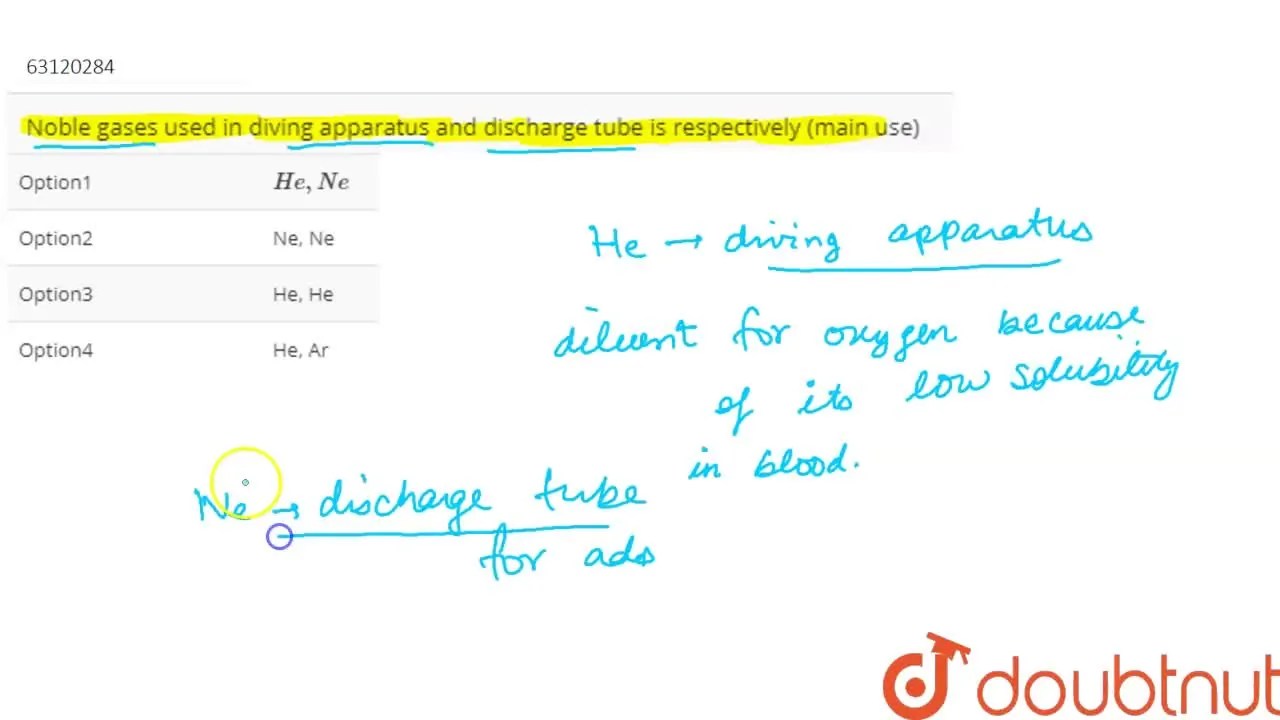 63120284
Noble gases used in diving apparatus and discharge tube is respectively (main use)
Option1 He, Ne
Option2 Ne, Ne
Option3 He, He
Option4 He, Ar
He → diving apparatus
diluent for oxygen because
of its low solubility
in blood.
Ne → discharge tube
for ads
doubtnut